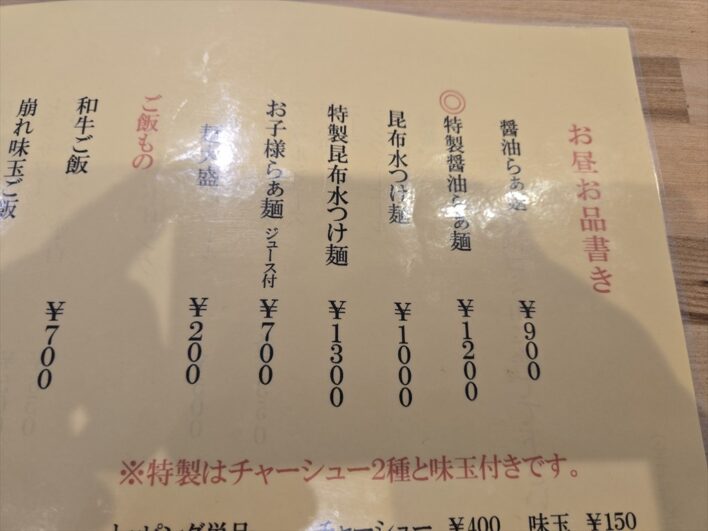 お昼お品書き
醤油らぁ麺 ¥900
◎特製醤油らぁ麺 ¥1200
昆布水つけ麺 ¥1000
特製昆布水つけ麺 ¥1300
お子様らぁ麺 ジュース付 ¥700
麺大盛 ¥200
ご飯もの
和牛ご飯 ¥700
崩れ味玉ご飯
※特製はチャーシュー2種と味玉付きです。
トッピング単品 チャーシュー ¥400 味玉 ¥150